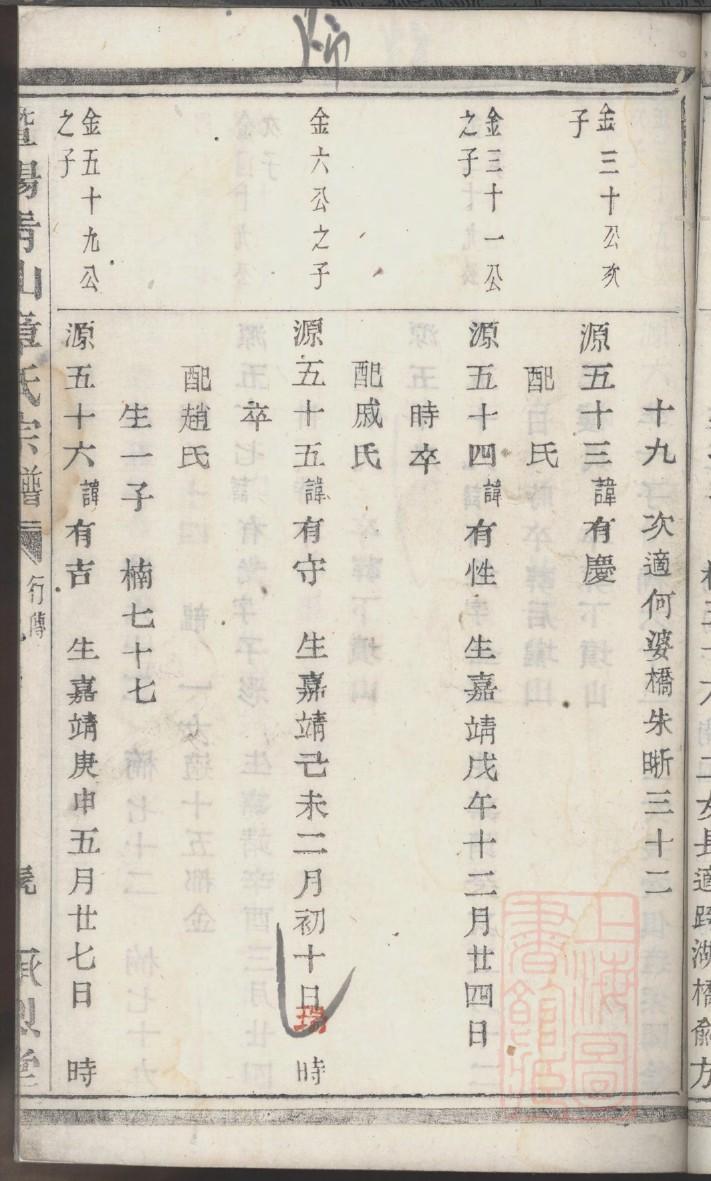 十九　次適何婆橋朱晰三十二
金三十公次
子
源五十三諱有慶
配　氏
金三十一公
之子
源五十四諱有性　生嘉靖戊午十二月廿四日
時卒
配戚氏
金六公之子
源五十五諱有守　生嘉靖己未二月初十日　時
卒
配趙氏
生一子　楠七十七
金五十九公
之子
源五十六諱有吉　生嘉靖庚申五月廿七日　時
暨陽青山章氏宗譜
行傳
承烈堂
上海圖書館藏